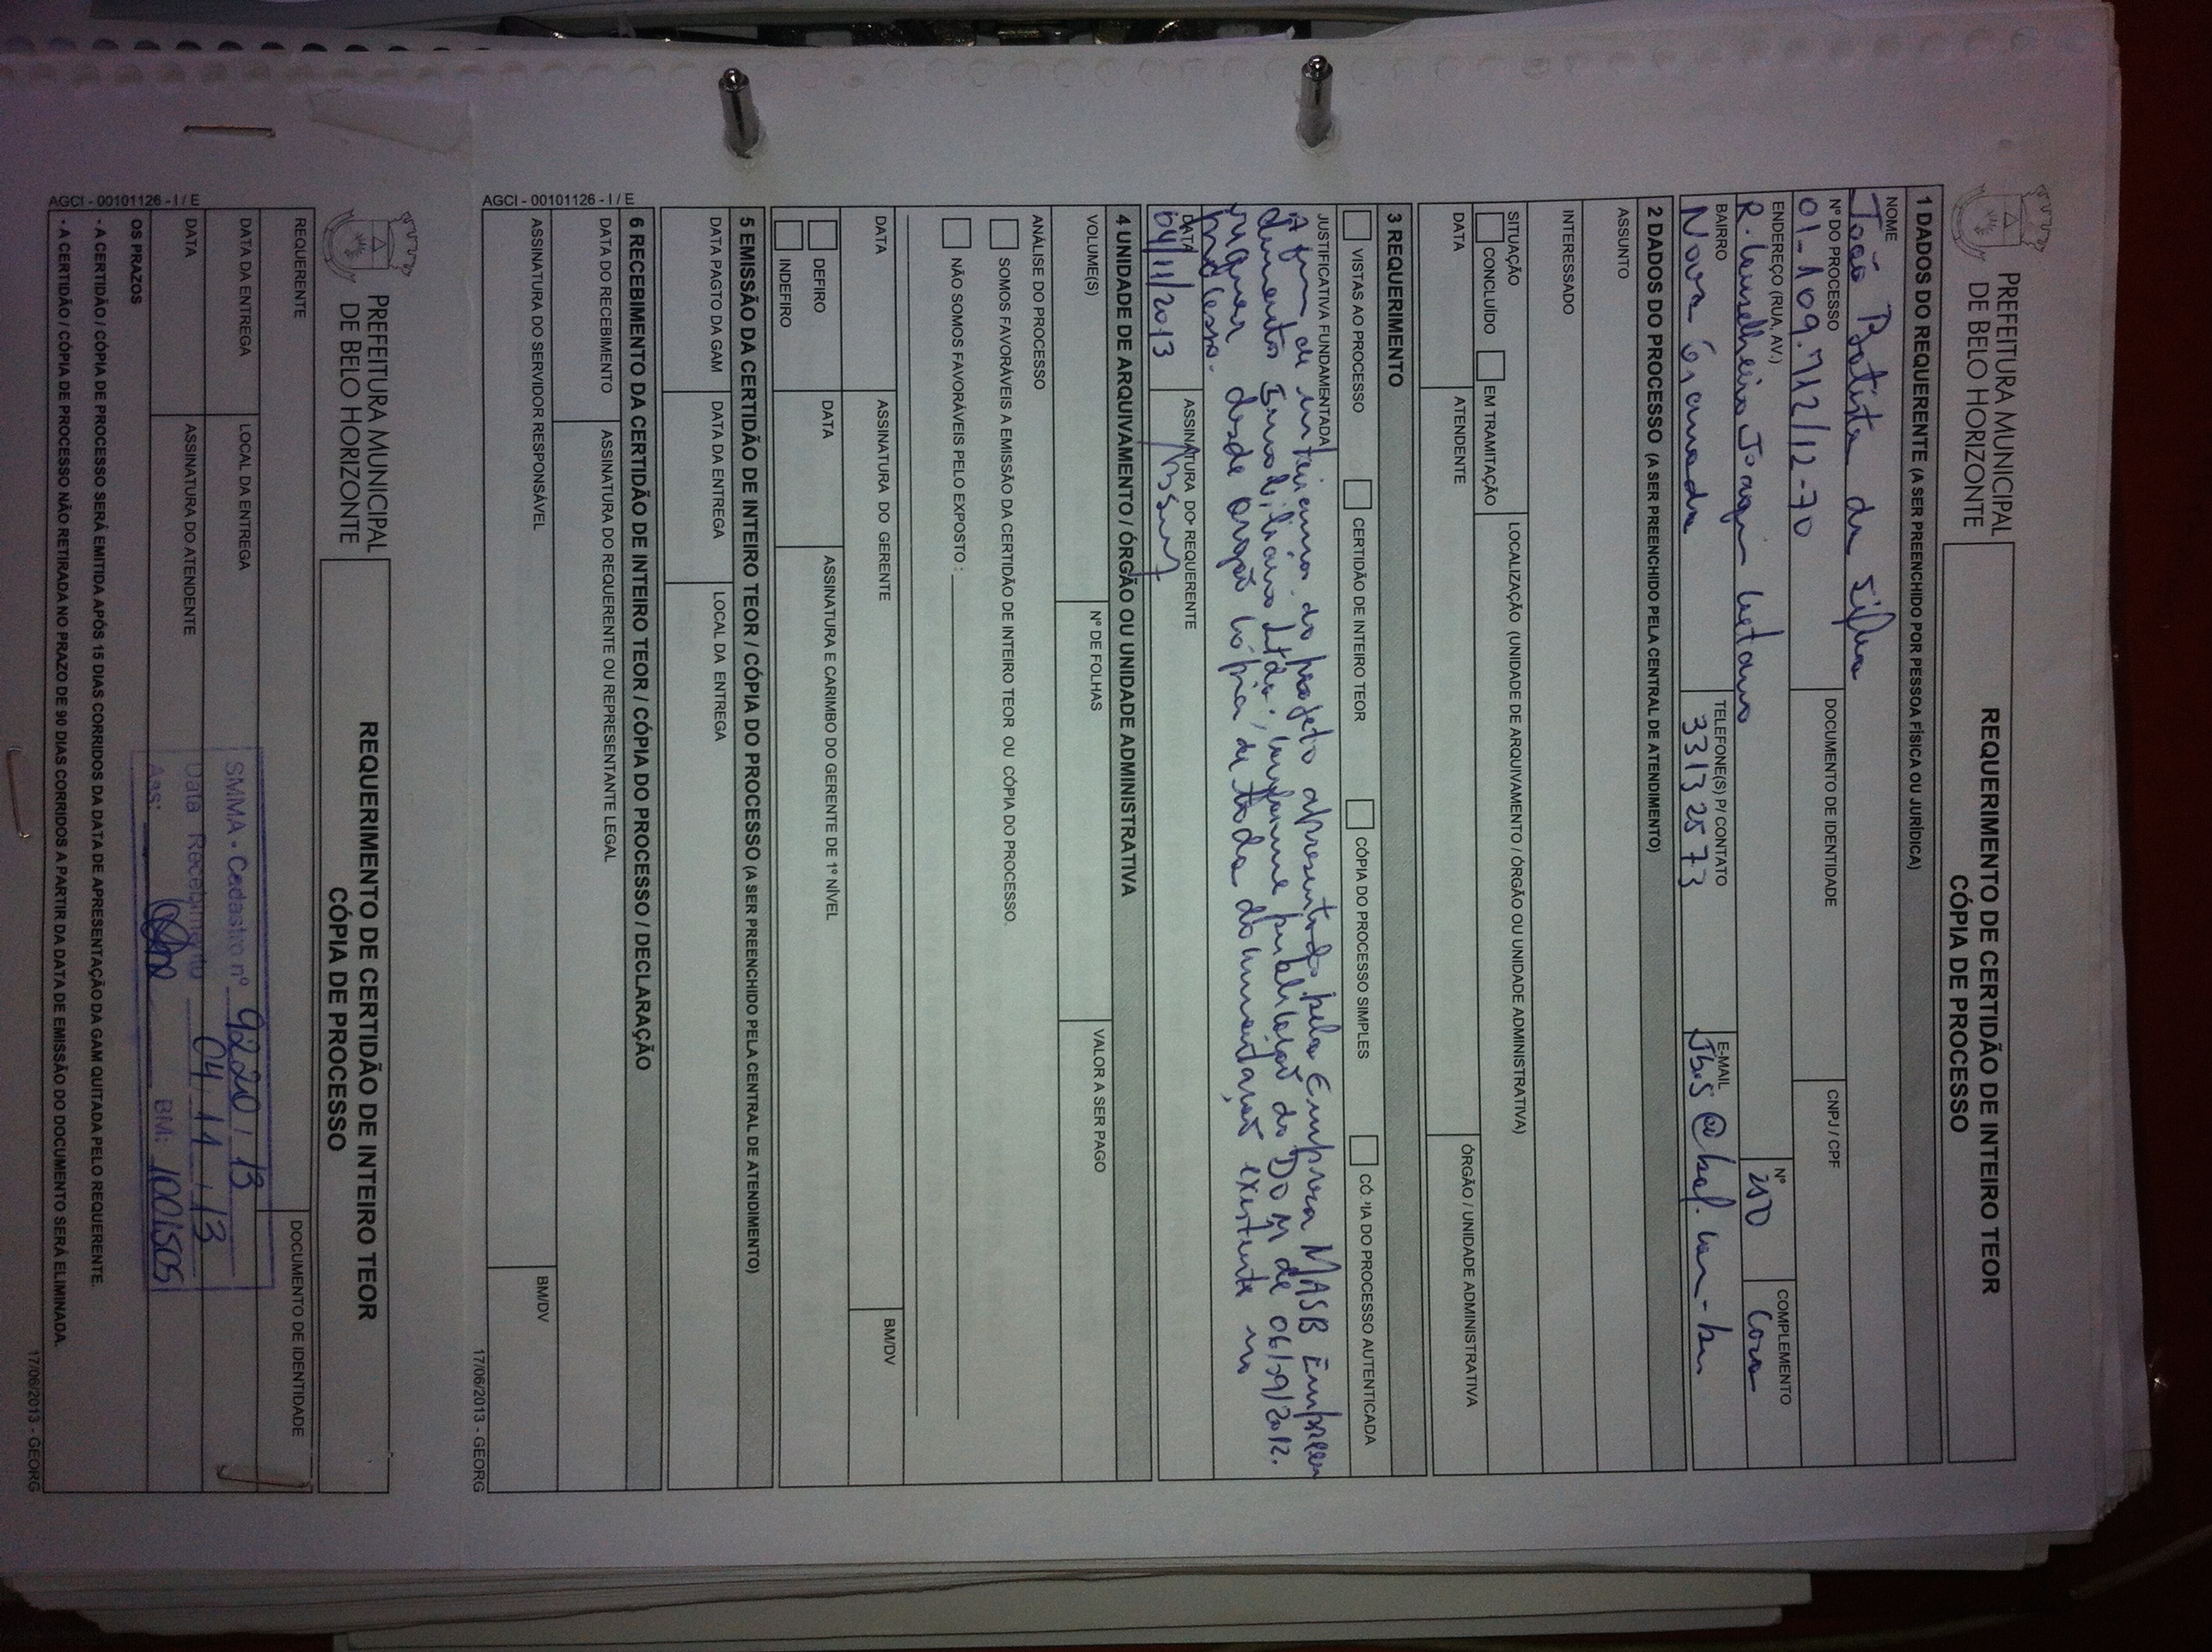 PREFEITURA MUNICIPAL
DE BELO HORIZONTE
REQUERIMENTO DE CERTIDÃO DE INTEIRO TEOR
CÓPIA DE PROCESSO
1 DADOS DO REQUERENTE (A SER PREENCHIDO POR PESSOA FÍSICA OU JURÍDICA)
NOME
João Batista da Silva
Nº DO PROCESSO DOCUMENTO DE IDENTIDADE CNPJ / CPF
01-109.712/12-70
ENDEREÇO (RUA, AV.) Nº COMPLEMENTO
R. Conselheiro Joaquim Caetano 250 Casa
BAIRRO TELEFONE(S) P/ CONTATO E-MAIL
Nova Granada 33132573
2 DADOS DO PROCESSO (A SER PREENCHIDO PELA CENTRAL DE ATENDIMENTO)
ASSUNTO
INTERESSADO
SITUAÇÃO LOCALIZAÇÃO (UNIDADE DE ARQUIVAMENTO / ÓRGÃO OU UNIDADE ADMINISTRATIVA)
CONCLUÍDO EM TRAMITAÇÃO
DATA ATENDENTE ÓRGÃO / UNIDADE ADMINISTRATIVA
3 REQUERIMENTO
VISTAS AO PROCESSO CERTIDÃO DE INTEIRO TEOR CÓPIA DO PROCESSO SIMPLES CÓ IA DO PROCESSO AUTENTICADA
JUSTIFICATIVA FUNDAMENTADA
A fim de inteirarmos do projeto apresentado pela Empresa MASB Empreen
dimentos Imobiliários Ltda., conforme publicação do DOM de 06/09/2012.
requer desde órgão cópia de toda documentação existente no
processo.
DATA ASSINATURA DO REQUERENTE
04/11/2013
4 UNIDADE DE ARQUIVAMENTO / ÓRGÃO OU UNIDADE ADMINISTRATIVA
VOLUME(S) Nº DE FOLHAS VALOR A SER PAGO
ANÁLISE DO PROCESSO
SOMOS FAVORÁVEIS A EMISSÃO DA CERTIDÃO DE INTEIRO TEOR OU CÓPIA DO PROCESSO.
NÃO SOMOS FAVORÁVEIS PELO EXPOSTO :
DATA ASSINATURA DO GERENTE BM/DV
DEFIRO DATA ASSINATURA E CARIMBO DO GERENTE DE 1º NÍVEL
INDEFIRO
5 EMISSÃO DA CERTIDÃO DE INTEIRO TEOR / CÓPIA DO PROCESSO (A SER PREENCHIDO PELA CENTRAL DE ATENDIMENTO)
DATA PAGTO DA GAM DATA DA ENTREGA LOCAL DA ENTREGA
6 RECEBIMENTO DA CERTIDÃO DE INTEIRO TEOR / CÓPIA DO PROCESSO / DECLARAÇÃO
DATA DO RECEBIMENTO ASSINATURA DO REQUERENTE OU REPRESENTANTE LEGAL
ASSINATURA DO SERVIDOR RESPONSÁVEL BM/DV
AGCI - 00101126 - I / E 17/06/2013 - GEORG
PREFEITURA MUNICIPAL
DE BELO HORIZONTE
REQUERIMENTO DE CERTIDÃO DE INTEIRO TEOR
CÓPIA DE PROCESSO
REQUERENTE DOCUMENTO DE IDENTIDADE
DATA DA ENTREGA LOCAL DA ENTREGA
DATA ASSINATURA DO ATENDENTE
SMMA - Cadastro nº 9220 / 13
Data Recebimento 04 / 11 / 13
Ass: BM: 1001505
OS PRAZOS
- A CERTIDÃO / CÓPIA DE PROCESSO SERÁ EMITIDA APÓS 15 DIAS CORRIDOS DA DATA DE APRESENTAÇÃO DA GAM QUITADA PELO REQUERENTE.
- A CERTIDÃO / CÓPIA DE PROCESSO NÃO RETIRADA NO PRAZO DE 90 DIAS CORRIDOS A PARTIR DA DATA DE EMISSÃO DO DOCUMENTO SERÁ ELIMINADA.
AGCI - 00101126 - I / E 17/06/2013 - GEORG